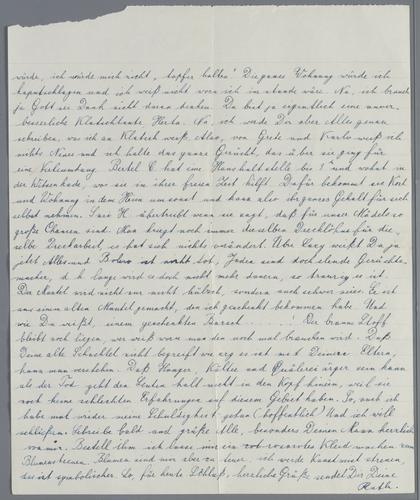 würde, ich würde mich nicht „tapfer halten“. Die ganze Wohnung würde ich
kaputschlagen und ich weiß nicht wozu ich im stande wäre. Na, ich brauch
ja Gott sei Dank nicht daran denken. Du bist ja eigentlich eine unver-
besserliche Klatschtante Herta. Na, ich werde Dir aber Alles genau
schreiben, was ich an Klatsch weiß. Also, von Grete und Karla weiß ich
nichts Neues und ich halte das ganze Gerücht, das über sie ging für
eine Verleumdung. Bertel C. hat eine Haushaltstelle bei und wohnt in
der, wo sie in ihrer freien Zeit hilft. Dafür bekommt sie Kost
und Wohnung in dem Heim umsonst und kann also ihr ganzes Gehalt für sich
selbst nehmen. Susi H. übertreibt wenn sie sagt, daß für unsere Mädels so
große Chancen sind. Man kriegt noch immer dieselben für die-
selbe Dreckarbeit, es hat sich nichts verändert. Über weißt Du ja
jetzt Alles und, Juden sind doch elende Gerüchte-
macher, d. h. lange wird es doch nicht mehr dauern, so traurig es ist.
Der Mantel wird nicht nur nicht hübsch, sondern auch schwer sein. Er ist
aus einem alten Mantel gemacht, den ich geschenkt bekommen habe. Und
wie Du weißt, einem geschenkten Barsch ......! Der braune Stoff
bleibt noch liegen, wer weiß wozu man den noch mal brauchen wird. Daß
Deine alte Schachtel nicht begreift wie arg es ist mit Deinen Eltern,
kann man verstehen. Daß Hunger, Kälte und Quälerei ärger sein kann
als der Tod geht den Leuten halt nicht in den Kopf hinein, weil sie
noch keine schlechten Erfahrungen auf diesem Gebiet haben. So, auch ich
habe mal wieder meine Schuldigkeit getan (hoffentlich) Und ich will
schließen. Schreibe bald und grüße alle, besonders Deinen Mann herzlich
von mir. Bestell ihm ich lasse mir ein rot rosarotes Kleid machen zum
Blumenstreuen. Blumen sind mir aber zu teuer, ich werde Kunstmist streuen
ist symbolischer. So, für heute Schluß, herzliche Grüße sendet Dir Deine
Ruth.